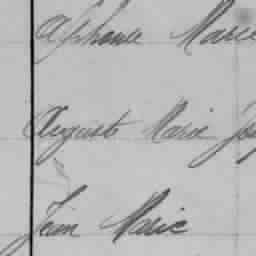 Alphonse Marie
Auguste Marie Jos
Jean Marie